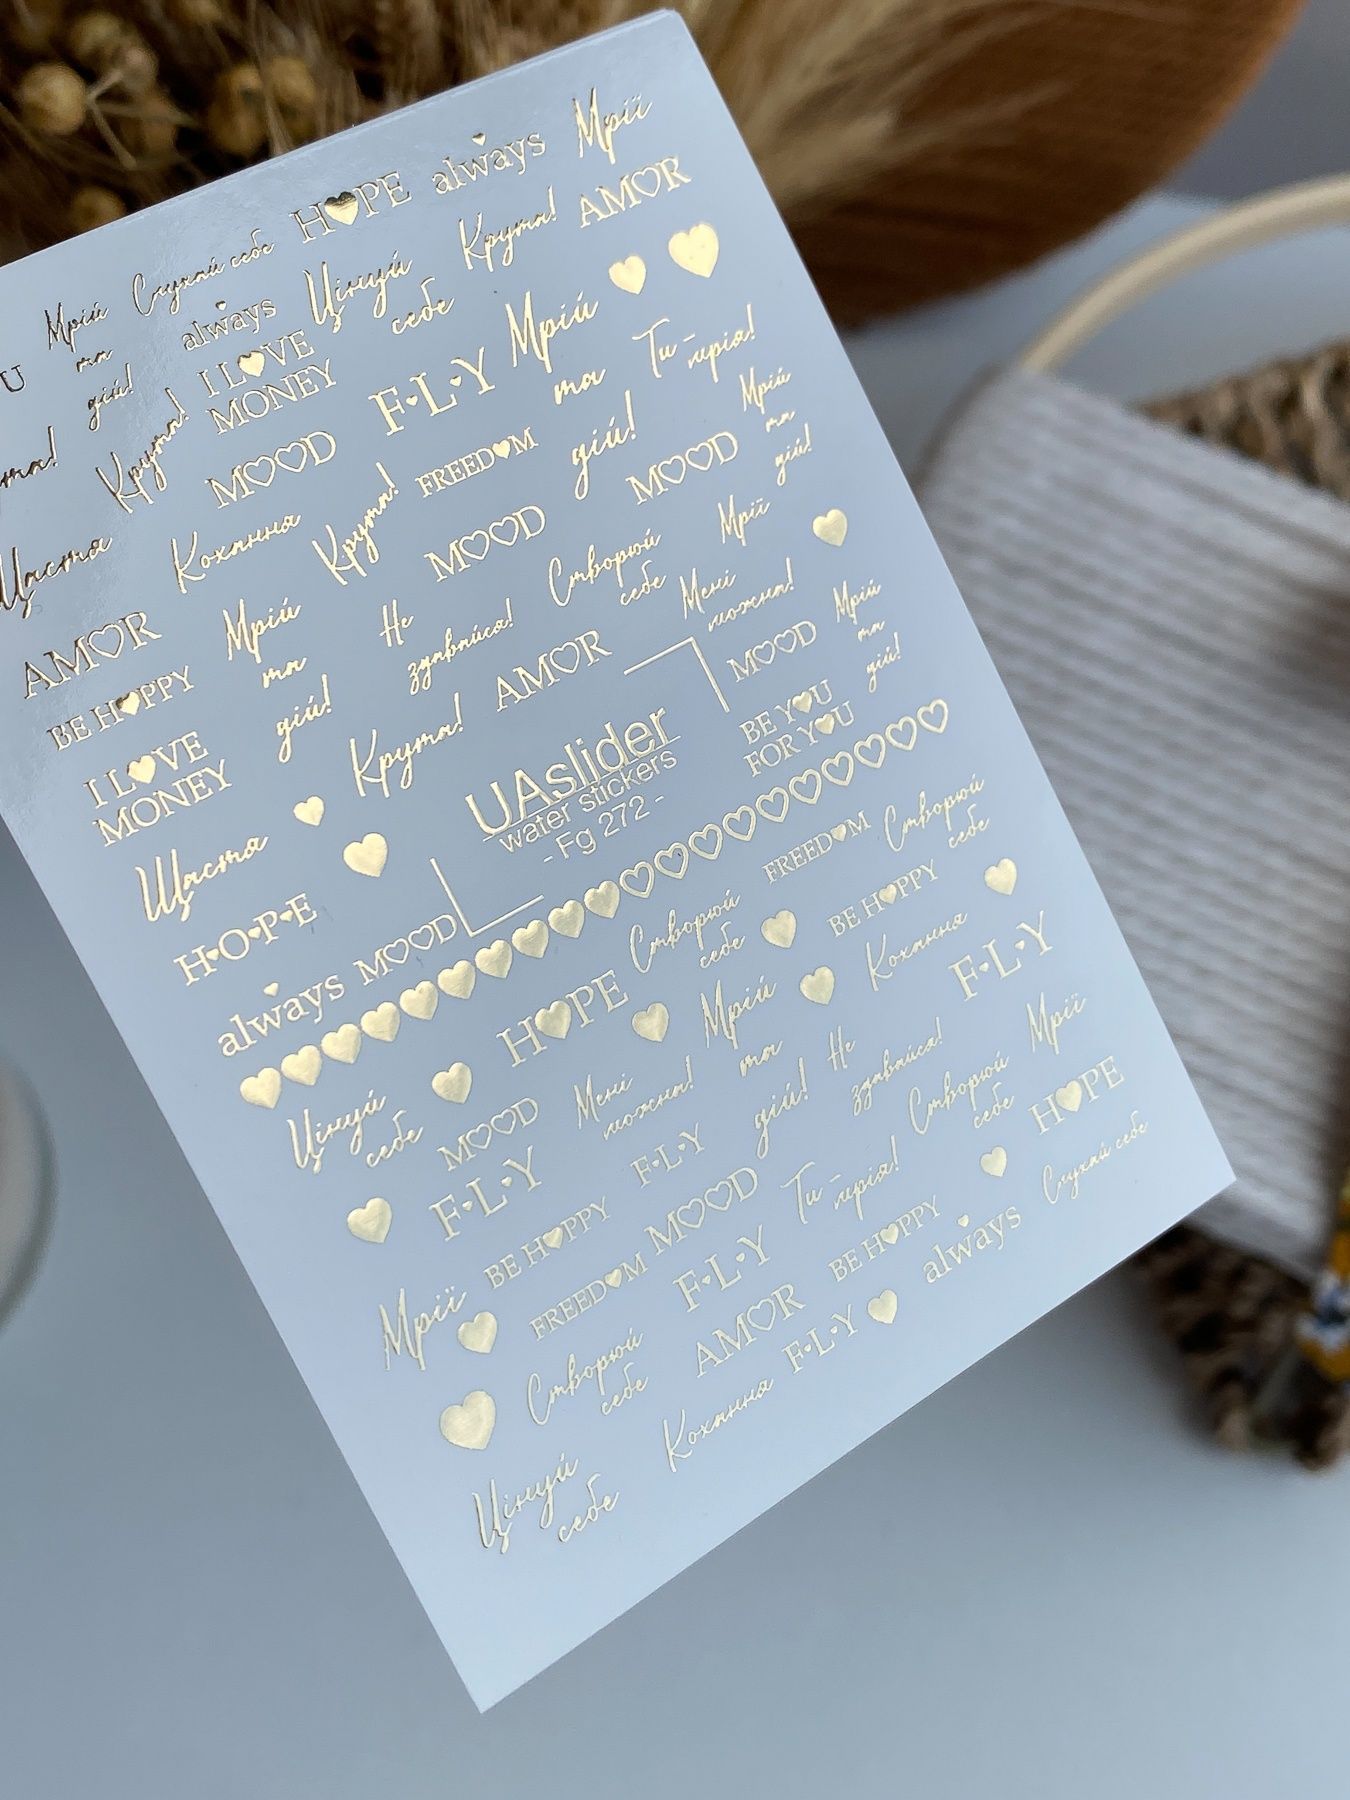 Мрії
always
HOPE
Слухай себе
Мрій
та
дій!
U
AMOR
Крута!
Цінуй
себе
always
I LOVE
MONEY
Крута!
Мрій
та
дій!
F·L·Y
MOOD
Ти -
мрія!
FREEDOM
Крута!
Кохання
Щастя
Мрій
та
дій!
MOOD
MOOD
Мрії
Створюй
себе
Не
здавайся!
Мрій
та
дій!
AMOR
BE HAPPY
Мені
можна!
AMOR
Крута!
I LOVE
MONEY
Мрій
та
дій!
MOOD
BE YOU
FOR YOU
UAslider
water stickers
- Fg 272 -
Щастя
H·O·P·E
always
MOOD
Створюй
себе
FREEDOM
BE HAPPY
Створюй
себе
HOPE
Цінуй
себе
Кохання
F·L·Y
Мрій
та
дій!
Мені
можна!
MOOD
F·L·Y
Мрії
Не
здавайся!
F·L·Y
BE HAPPY
Створюй
себе
HOPE
Ти -
мрія!
MOOD
FREEDOM
Мрії
Слухай себе
BE HAPPY
F·L·Y
always
AMOR
Створюй
себе
F·L·Y
Кохання
Цінуй
себе